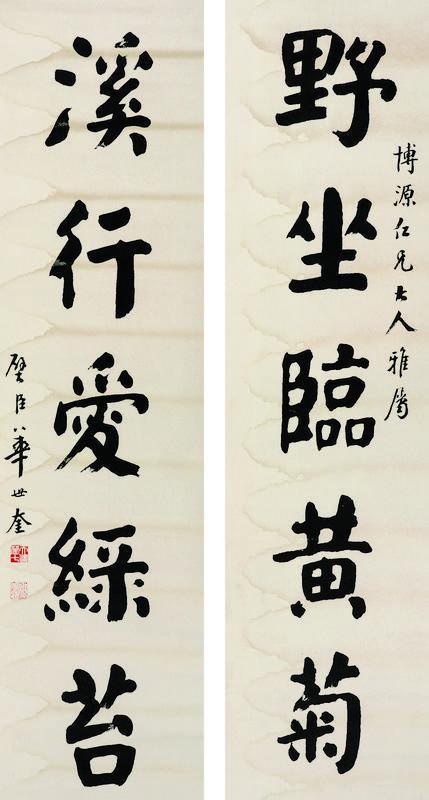 野坐臨黄菊
博源仁兄大人雅屬
溪行愛綠苔
璧臣華世奎